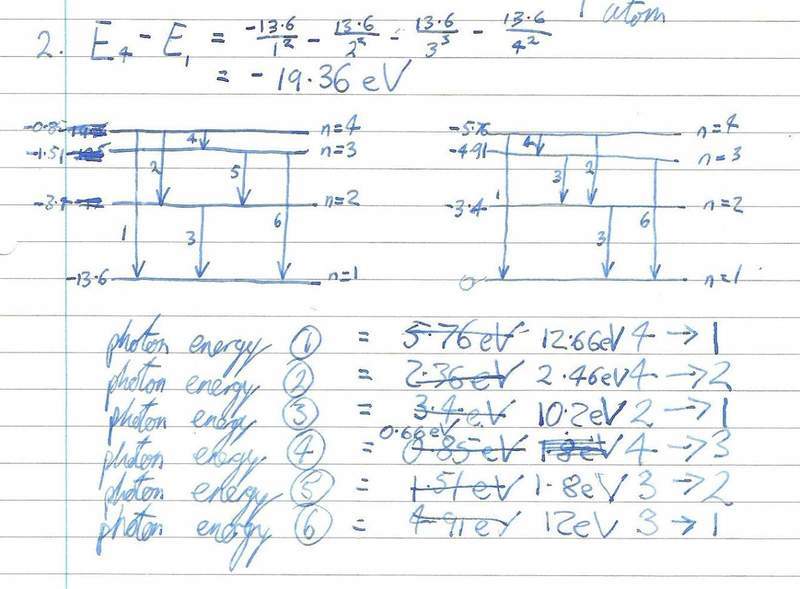 1 atom
2. E₄ - E₁ = -13.6/1² - 13.6/2² - 13.6/3³ - 13.6/4²
= - 19.36 eV
-0.85 n=4 -5.76 n=4
-1.51 4 n=3 -4.91 4 n=3
2 5 1 3 2
-3.4 n=2 -3.4 n=2
1 3 6 3 6
-13.6 n=1 0 n=1
photon energy ① = 5.76 eV 12.66eV 4 → 1
photon energy ② = 2.36 eV 2.46eV 4 → 2
photon energy ③ = 3.4 eV 10.2eV 2 → 1
0.66 eV
photon energy ④ = 0.85 eV 1.8eV 4 → 3
photon energy ⑤ = 1.51 eV 1.8eV 3 → 2
photon energy ⑥ = 4.91 eV 12eV 3 → 1